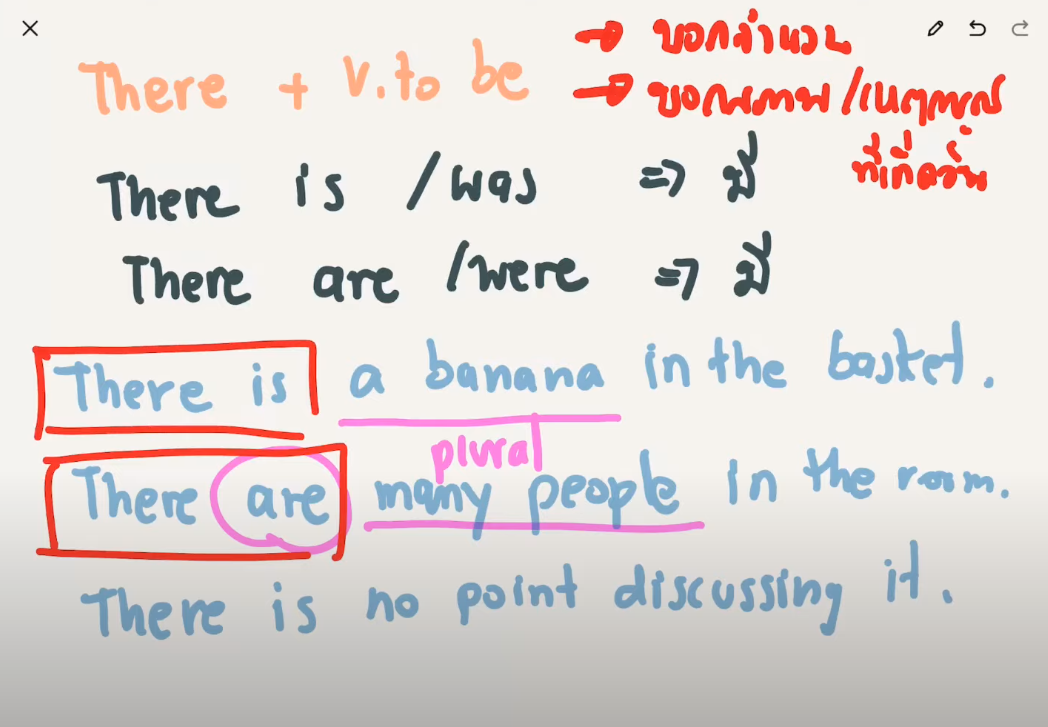 There + V. to be
→ บอกจำนวน
→ บอกสภาพ/เหตุการณ์
ที่เกิดขึ้น
There is /was => มี
There are /were => มี
There is a banana in the basket.
plural
There are many people in the room.
There is no point discussing it.